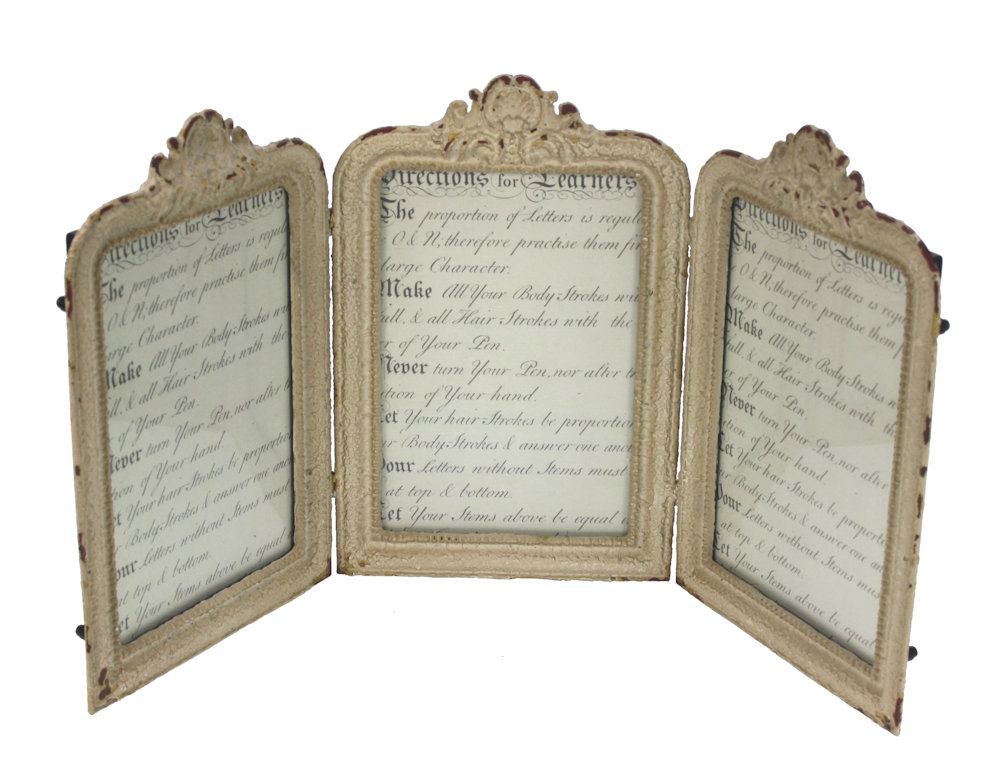 Directions for Learners
The proportion of Letters is regula
O & N; therefore practise them fir
large Character.
Make All Your Body Strokes wi
ull, & all Hair Strokes with the
er of Your Pen.
Never turn Your Pen, nor alter
ition of Your hand.
Let Your hair Strokes be proportion
ur Body-Strokes & answer one ano
Your Letters without Stems must
at top & bottom.
Let Your Stems above be equal
Directions for Learners
The proportion of Letters is regula
O & N; therefore practise them fir
large Character.
Make All Your Body Strokes wi
ull, & all Hair Strokes with the
er of Your Pen.
Never turn Your Pen, nor alter th
ition of Your hand.
Let Your hair Strokes be proportion
ur Body-Strokes & answer one ano
Your Letters without Stems must
at top & bottom.
Let Your Stems above be equal
Directions for Learners
The proportion of Letters is regu
O & N; therefore practise them f
large Character.
Make All Your Body Strokes
ull, & all Hair Strokes with the
er of Your Pen.
Never turn Your Pen, nor alter
ition of Your hand.
Let Your hair Strokes be proportion
ur Body-Strokes & answer one an
Your Letters without Stems must
at top & bottom.
Let Your Stems above be equal